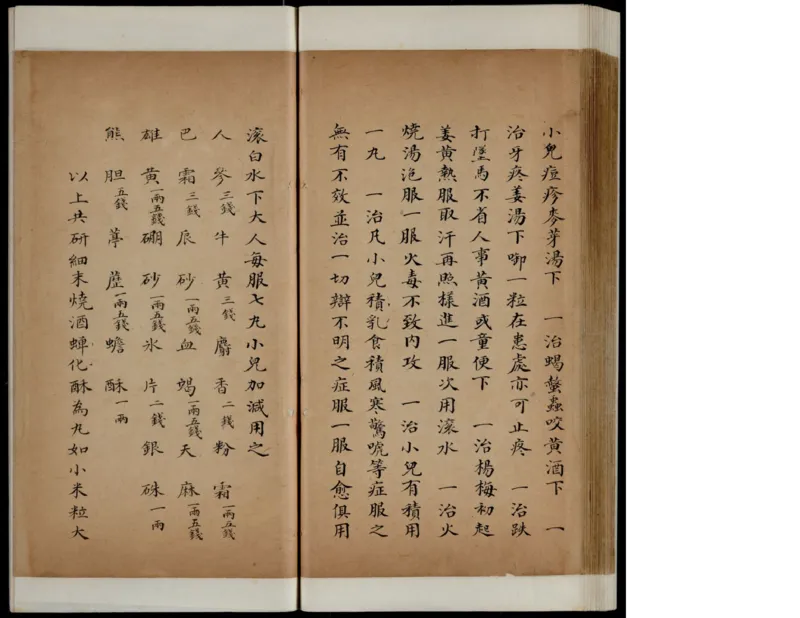 小兒痘疹麥芽湯下　一治蝎螫蟲咬黃酒下　一
治牙疼姜湯下啣一粒在患處亦可止疼　一治跌
打墜馬不省人事黃酒或童便下　一治楊梅初起
姜黃熱服取汗再照樣進一服次用滾水　一治火
燒湯泡服一服火毒不致內攻　一治小兒有積用
一丸　一治凡小兒積乳食積風寒驚唬等症服之
無有不效並治一切辯不明之症服一服自愈俱用
滾白水下大人每服七丸小兒加減用之
人參三錢牛黃三錢麝香二錢粉霜一兩五錢
巴霜三錢辰砂一兩五錢血蝎一兩五錢天麻一兩五錢
雄黃一兩五錢硼砂一兩五錢氷片二錢銀硃一兩
熊胆五錢葶藶一兩五錢蟾酥一兩
以上共研細末燒酒蟬化酥為丸如小米粒大